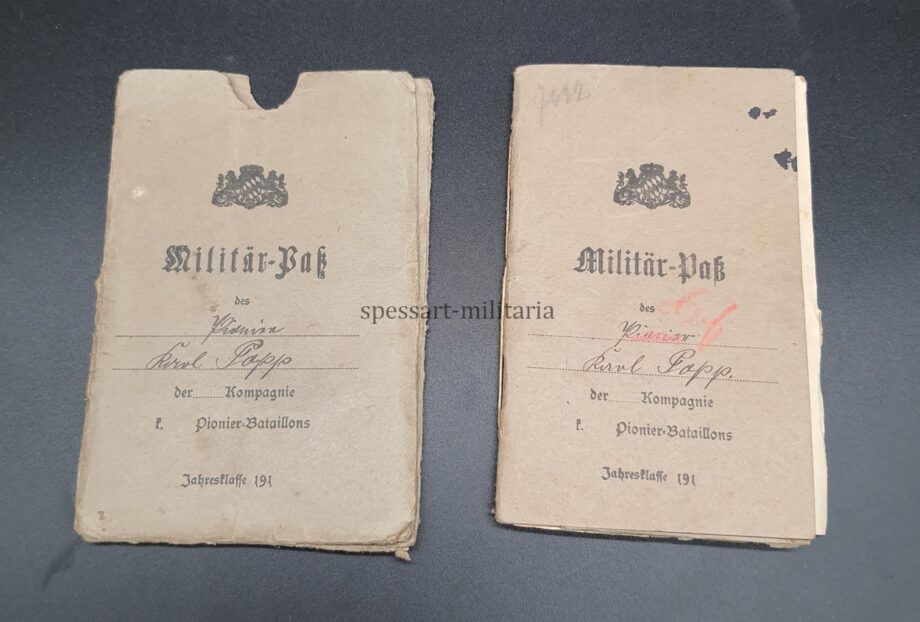 Militär-Paß
des
Pionier
Karl Popp
der Kompagnie
k. Pionier-Bataillons
Jahresklasse 191
Militär-Paß
des
Pionier
Karl Popp.
der Kompagnie
k. Pionier-Bataillons
Jahresklasse 191
spessart-militaria